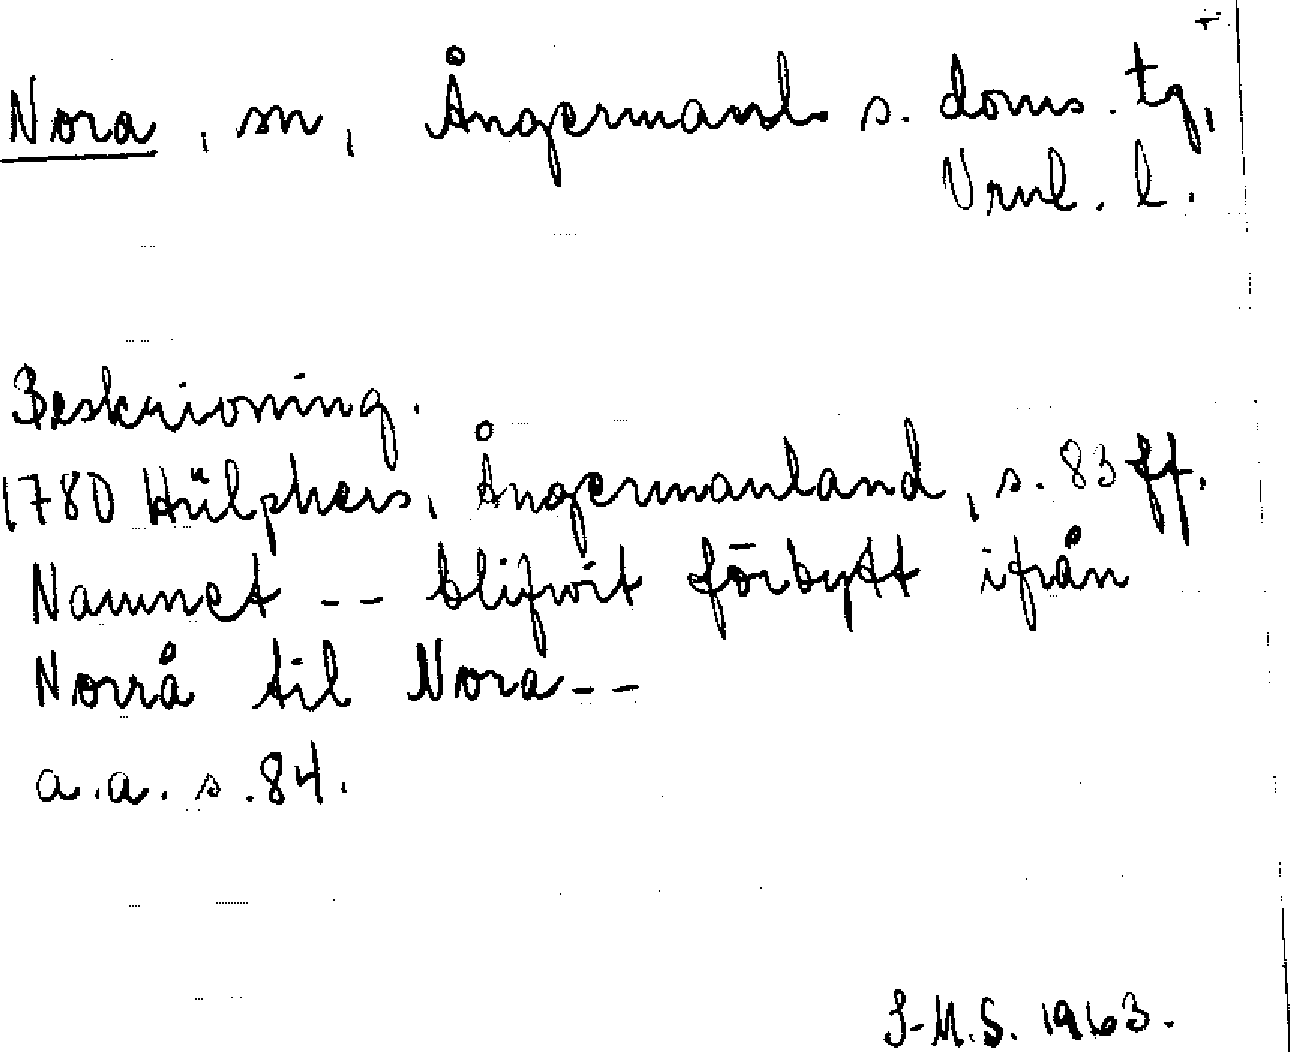 Nora, sn, Ångermanl. s. doms. tg,
Vrnl. l.
Beskrivning.
1780 Hülphers, Ångermanland, s. 83 ff.
Namnet -- blifwit förbytt ifrån
Norrå til Nora--
a.a. s. 84.
I-M.S. 1963.